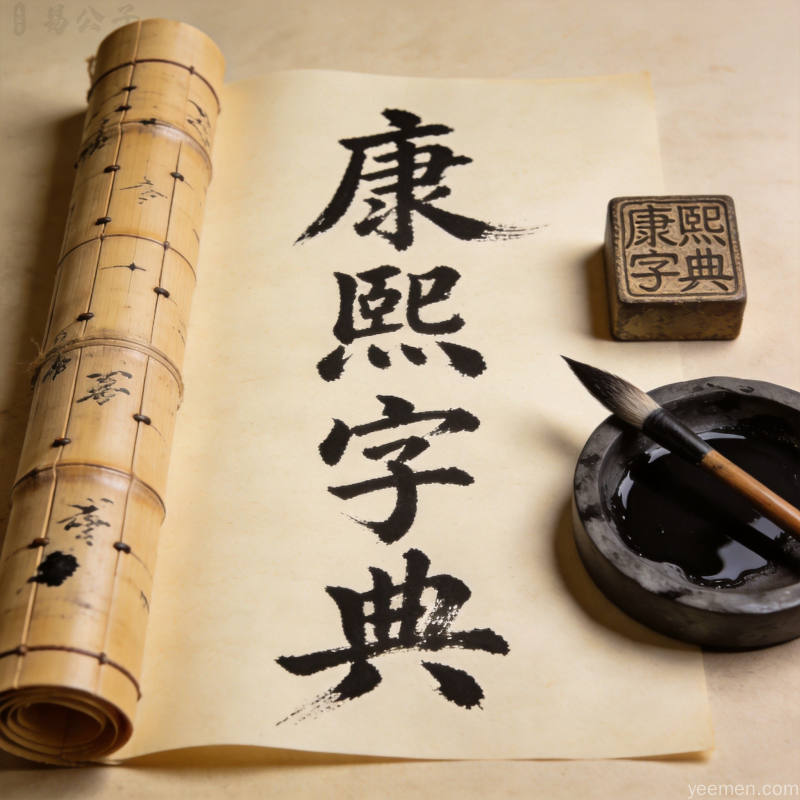 康熙字典
康熙
字典
易公子
yeemen.com